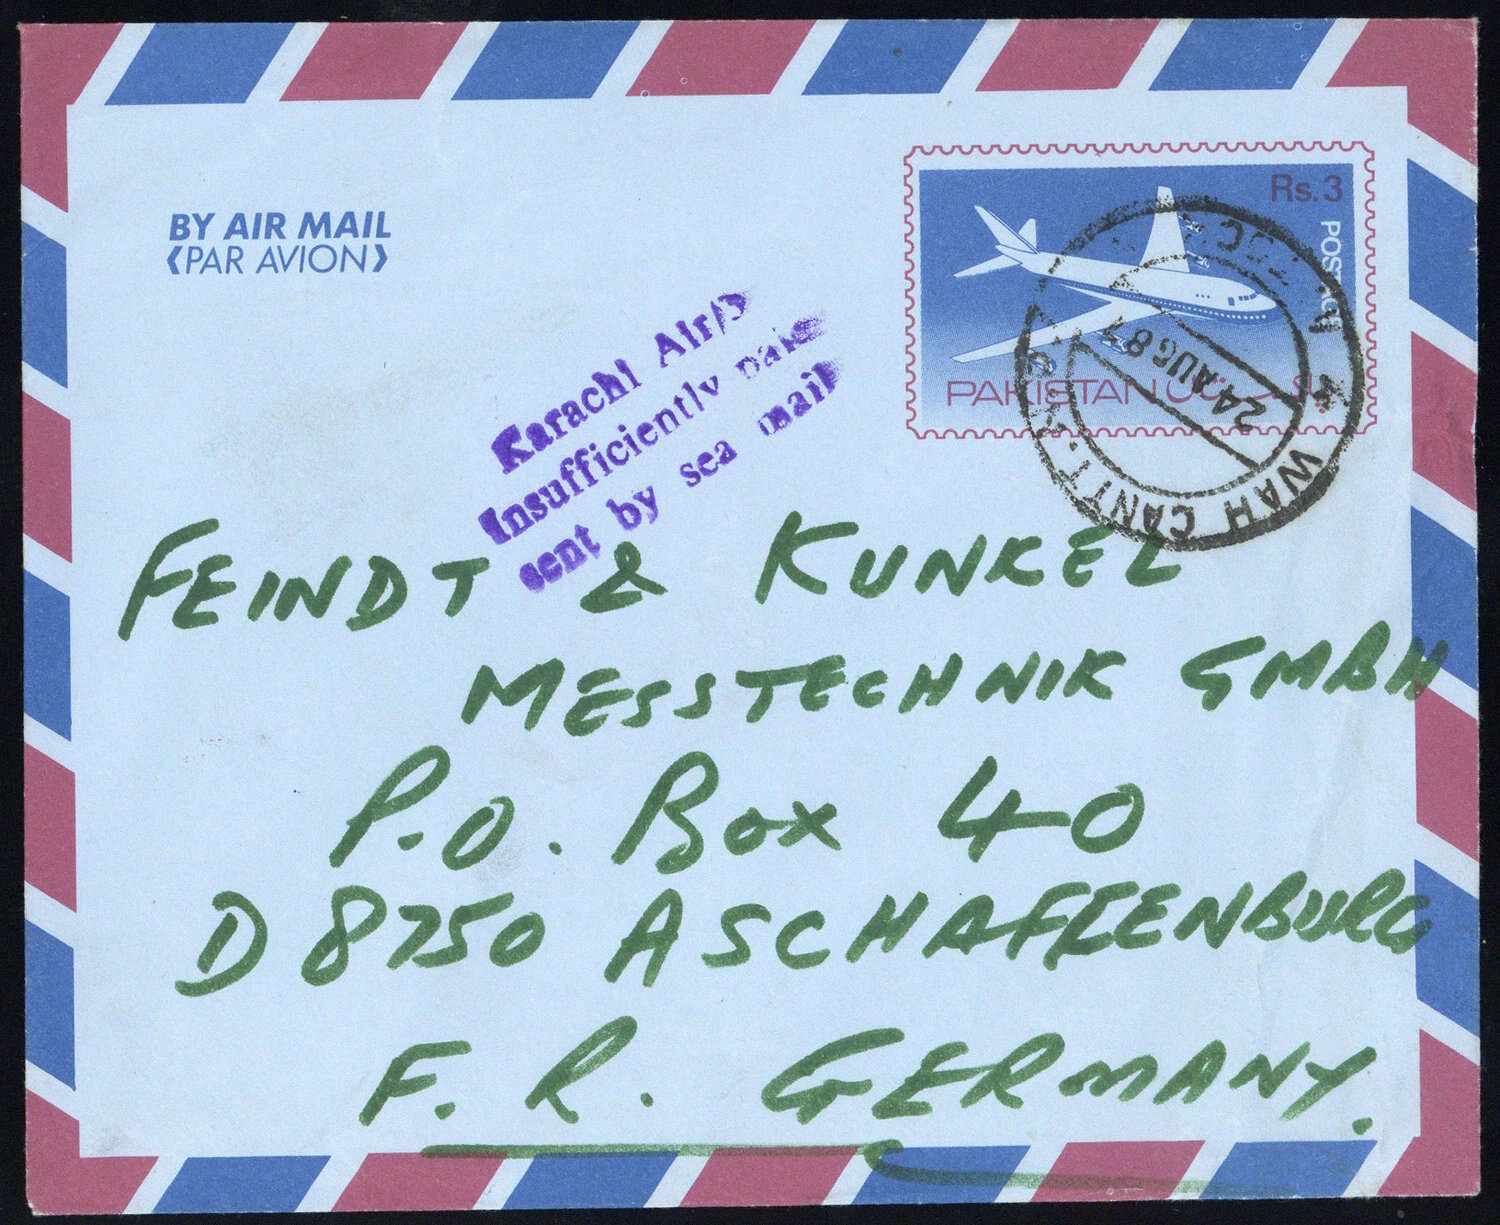 BY AIR MAIL
(PAR AVION)
Rs.3
POSTAGE
PAKISTAN پاکستان
24 AUG 87
WAH CANTT.
Karachi Air/P
Insufficiently paid
sent by sea mail
FEINDT & KUNKEL
MESSTECHNIK GMBH
P.O. Box 40
D 8750 ASCHAFFENBURG
F. R. GERMANY.